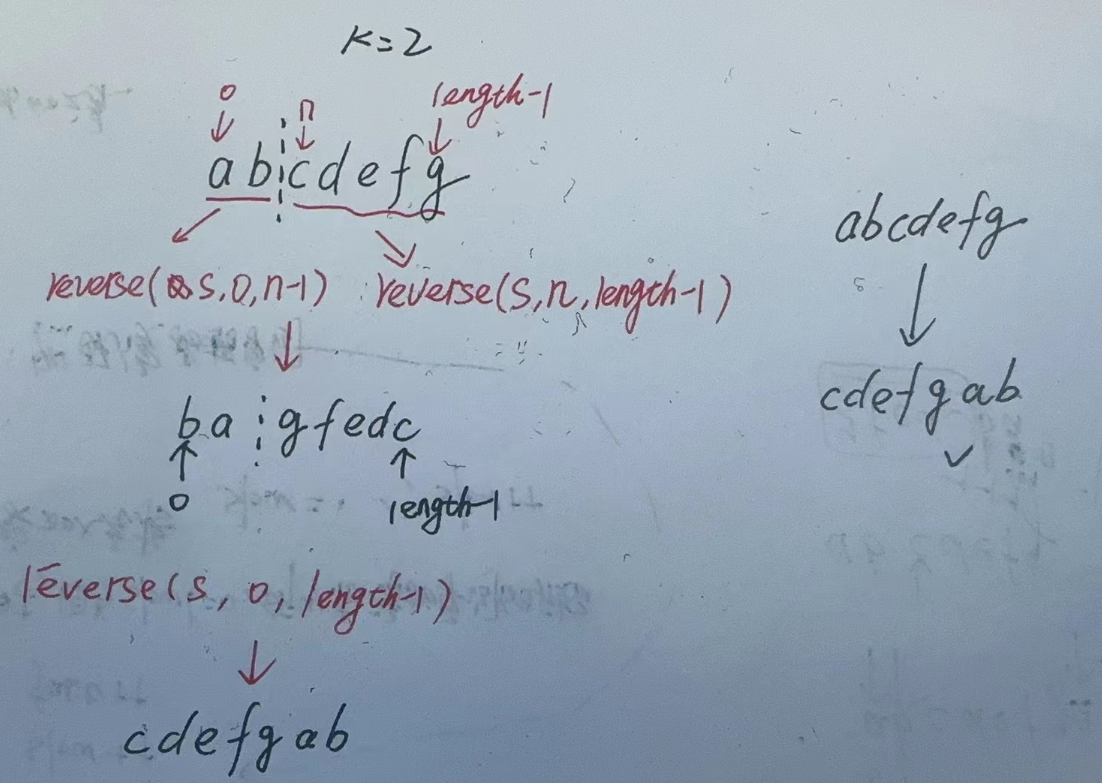 K=2
0
n
length-1
abcdefg
reverse(s,0,n-1) reverse(s,n,length-1)
ba gfedc
0
length-1
reverse(s, 0, length-1)
cdefgab
abcdefg
cdefgab